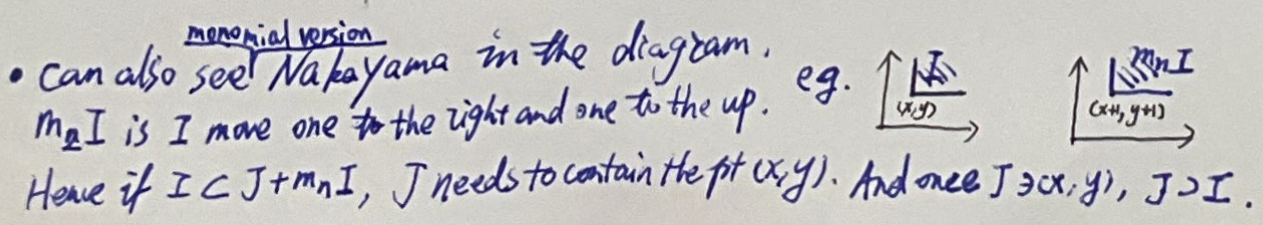 monomial version
• can also see Nakayama in the diagram.
m₂I is I move one to the right and one to the up. eg. I (x,y) mₙI (x+1, y+1)
Hence if I ⊂ J+mₙI, J needs to contain the pt (x,y). And once J∋(x,y), J⊃I.